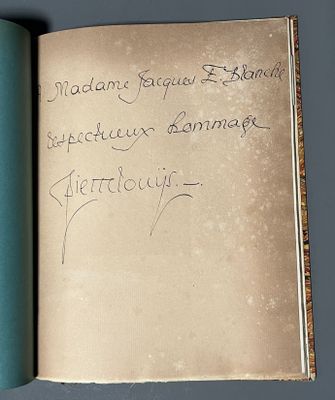 A Madame Jacques E. Blanche
respectueux hommage
Pierre Louÿs.